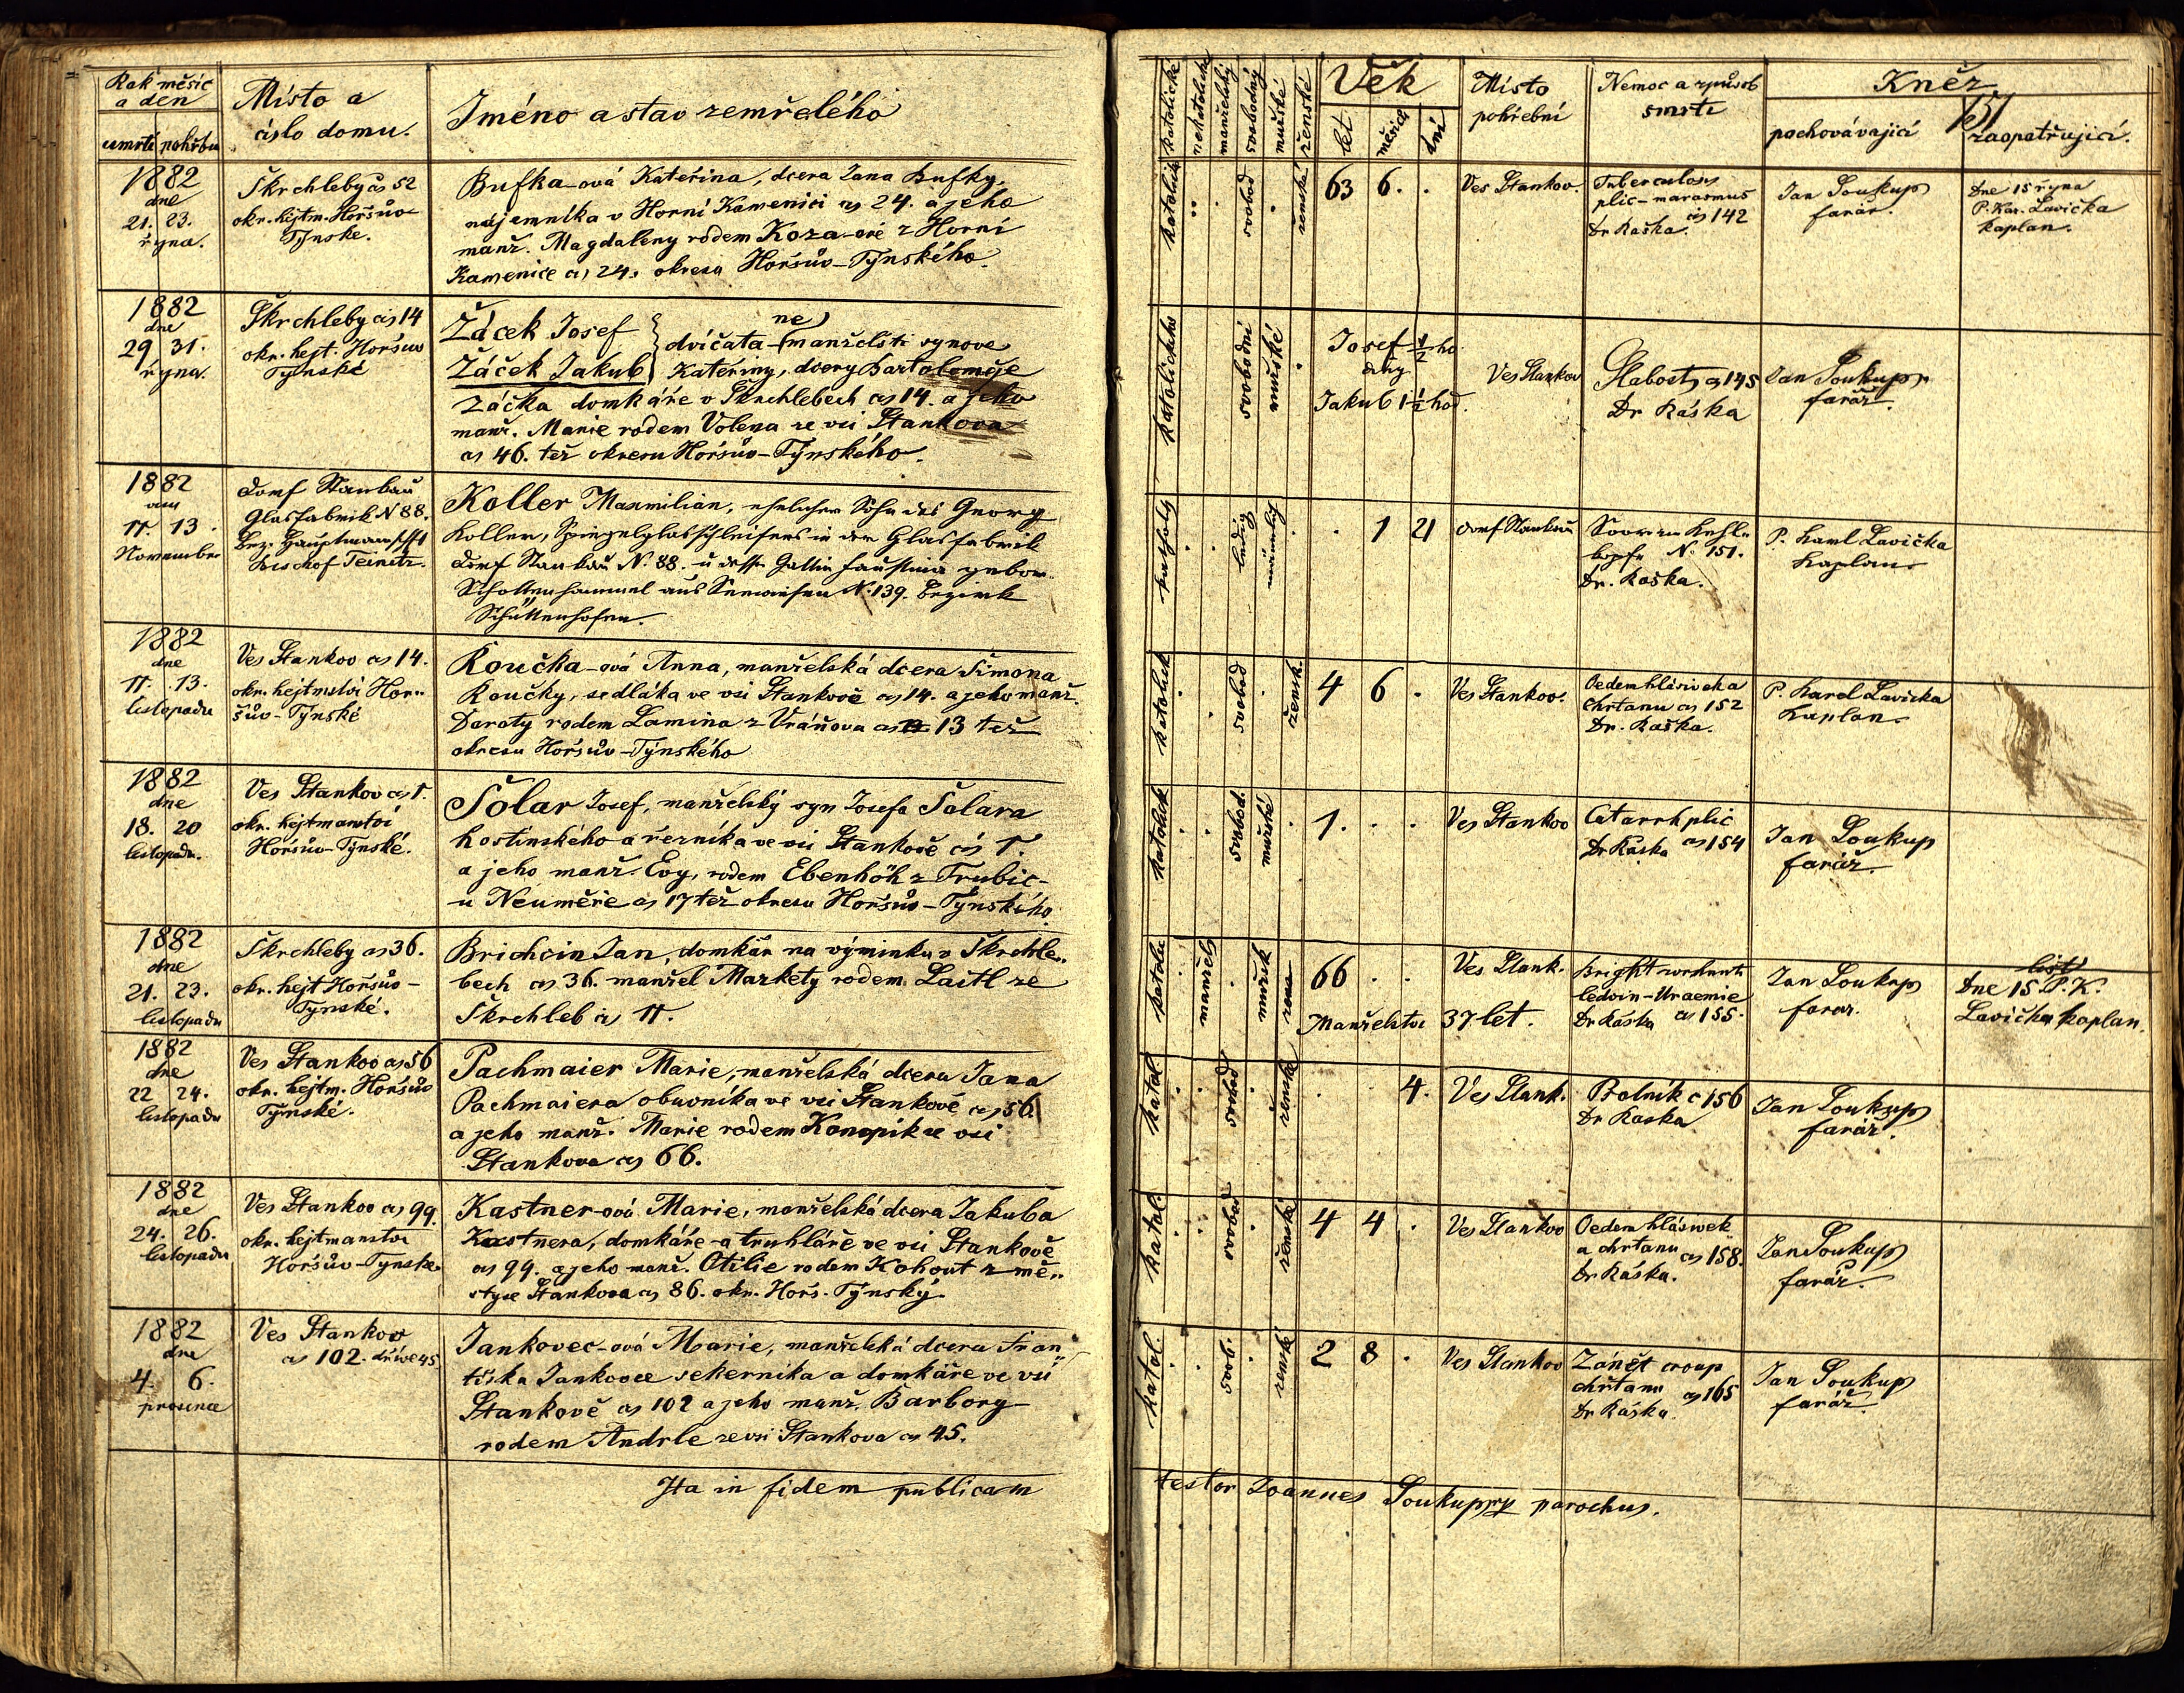 Rok měsíc
a den
úmrtí pohřbu
Místo a
číslo domu.
Jméno a stav zemřelého
1882
dne
21. 23.
října.
Škrchleby čs 52
okr. hejtm. Horšův
Týnské.
Bufka-ová Kateřina, dcera Jana Bufky
nájemníka v Horní Kamenici čs 24. a jeho
manž. Magdaleny rodem Koza-ové z Horní
Kamenice čs 24. okresu Horšův-Týnského.
1882
dne
29 31.
října.
Škrchleby čs 14
okr. hejt. Horšův
Týnské
Žáček Josef
Žáček Jakub
dvíčata - (ne) manželští synové
Kateřiny, dcery Bartoloměje
Žáčka domkáře v Škrchlebech čs 14. a jeho
manž. Marie rodem Volena ze vsi Stankova
čs 46. též okresu Horšův-Týnského.
1882
am
11. 13.
November
Dorf Stankau
Glasfabrik N 88.
Bez. Hauptmannschft
Bischof Teinitz.
Koller Maxmilian, ehelicher Sohn des Georg
Koller, Spiegelglasschleifers in der Glasfabrik
Dorf Stankau N. 88. u dessen Gattin Faustina gebor.
Schottenhammel aus N. 139. Bezirk
Schüttenhofen.
1882
dne
11. 13.
listopadu
Ves Stankov čs 14.
okr. hejtmství Hor-
šův-Týnské
Koučka-ová Anna, manželská dcera Šimona
Koučky, sedláka ve vsi Stankově čs 14. a jeho manž.
Doroty rodem Lamina z Vráňova čs 13 též
okresu Horšův-Týnského
1882
dne
18. 20
listopadu.
Ves Stankov čs 1.
okr. hejtmanství
Horšův-Týnské.
Šolar Josef, manželský syn Josefa Šolara
hostinského a řezníka ve vsi Stankově čs 1.
a jeho manž. Evy, rodem Ebenhöh z Trubic-
u Neuměře čs 17 též okresu Horšův-Týnského
1882
dne
21. 23.
listopadu
Škrchleby čs 36.
okr. hejt Horšův-
Týnské.
Brichcin Jan, domkář na výminku v Škrchle-
bech čs 36. manžel Markety rodem Lastl ze
Škrchleb čs 11.
1882
dne
22 24.
listopadu
Ves Stankov čs 56
okr. hejtm. Horšův
Týnské.
Pachmaier Marie, manželská dcera Jana
Pachmaiera obuvníka ve vsi Stankově čs 56
a jeho manž. Marie rodem Konopík ze vsi
Stankova čs 66.
1882
dne
24. 26.
listopadu
Ves Stankov čs 99.
okr. hejtmanství
Horšův-Týnské
Kastner-ová Marie, manželská dcera Jakuba
Kastnera, domkáře a truhláře ve vsi Stankově
čs 99. a jeho manž. Otilie rodem Kohout z mě-
styse Stankova čs 86. okr. Horš. Týnský.
1882
dne
4. 6.
prosince
Ves Stankov
čs 102. dříve 45
Jankovec-ová Marie, manželská dcera Fran-
tiška Jankovce sekerníka a domkáře ve vsi
Stankově čs 102 a jeho manž. Barbory
rodem Andrle ze vsi Stankova čs 45.
Ita in fidem publicam
katolické
nekatolické
manželský
svobodný
mužské
ženské
Věk
let
měsíců
dní
Místo
pohřební
Nemoc a způsob
smrti
Kněz
151
pochovávající
zaopatřující.
katolick
svobod
ženská
63 6. .
Ves Stankov.
Tuberculosis
plic-marasmus
čs 142
Dr Raška.
Jan Soukup
farář.
Dne 15 října
P. Kar. Lavička
kaplan.
katolického
svobodní
mužské
Josef 1/2 ho
diny
Jakub 1 1/2 hod.
Ves Stankov
Slabost čs 145
Dr Raška
Jan Soukup
farář.
katholy
ledig
männlich
. 1 21
Dorf Stankau
Soor im Kehl-
kopfe N. 151.
Dr. Raška.
P. Karl Lavička
Kaplan
katolick
svobod
žensk.
4 6 .
Ves Stankov.
Oedem hlasivek a
chřtanu čs 152
Dr. Raška.
P. Karel Lavička
Kaplan
katolick
svobod.
mužské
1. . .
Ves Stankov
Catarrh plic
čs 154
Dr Raška
Jan Soukup
farář.
katolic
manžels
mužsk
66 . .
Manželství 37 let.
Ves Stank.
Bright
ledvin-Uraemie
Dr Raška čs 155.
Jan Soukup
farar.
list
Dne 15. P. K.
Lavička kaplan.
katol
svobod
ženské
. . 4.
Ves Stank.
Bolník č 156
Dr Raska
Jan Soukup
farář.
katol.
svobod
ženská
4 4 .
Ves Stankov
Oedem hlasivek
a chrtanu čs 158.
Dr Ráska.
Jan Soukup
farář.
katol.
svob.
ženské
2 8 .
Ves Stankov
Zánět croup
chřtanu čs 165
Dr Ráska
Jan Soukup
farář.
testor Joannes Soukup parochus.